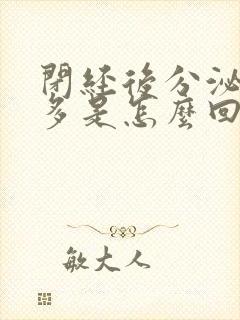 閉經後分泌
多是怎麼回
敏大人